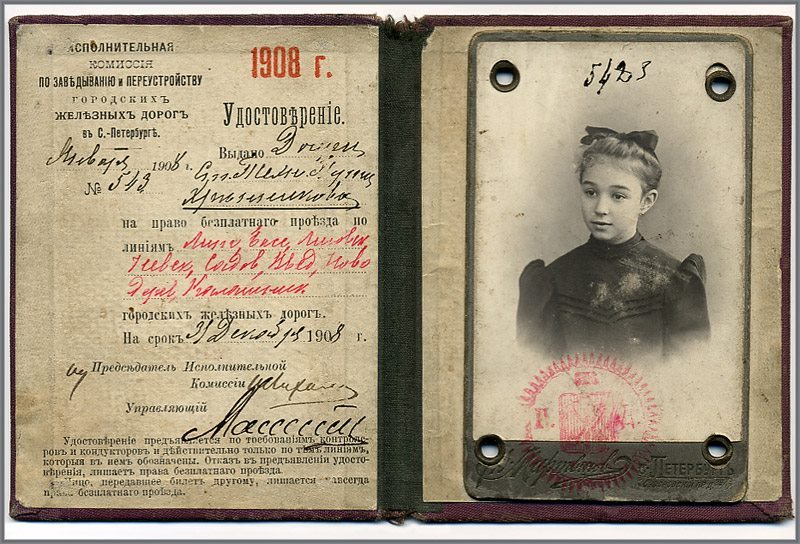 ИСПОЛНИТЕЛЬНАЯ
КОМИССІЯ
ПО ЗАВѢДЫВАНІЮ и ПЕРЕУСТРОЙСТВУ
ГОРОДСКИХЪ
ЖЕЛѢЗНЫХЪ ДОРОГЪ
въ С.-Петербургѣ.
Января 1908 г.
№ 543
1908 г.
Удостовѣреніе.
Выдано Дочери
на право безплатнаго проѣзда по
линіямъ
Невск, Садов
городскихъ желѣзныхъ дорогъ.
На срокъ 31 Декабря 1908 г.
Предсѣдатель Исполнительной
Комиссіи
Управляющій
Удостовѣреніе предъявляется по требованіямъ контроле-
ровъ и кондукторовъ и дѣйствительно только по тѣмъ линіямъ,
которыя въ немъ обозначены. Отказъ въ предъявленіи удосто-
вѣренія, лишаетъ права безплатнаго проѣзда.
Лицо, передавшее билетъ другому, лишается навсегда
права безплатнаго проѣзда.
5423
С. ПЕТЕРБУРГЪ